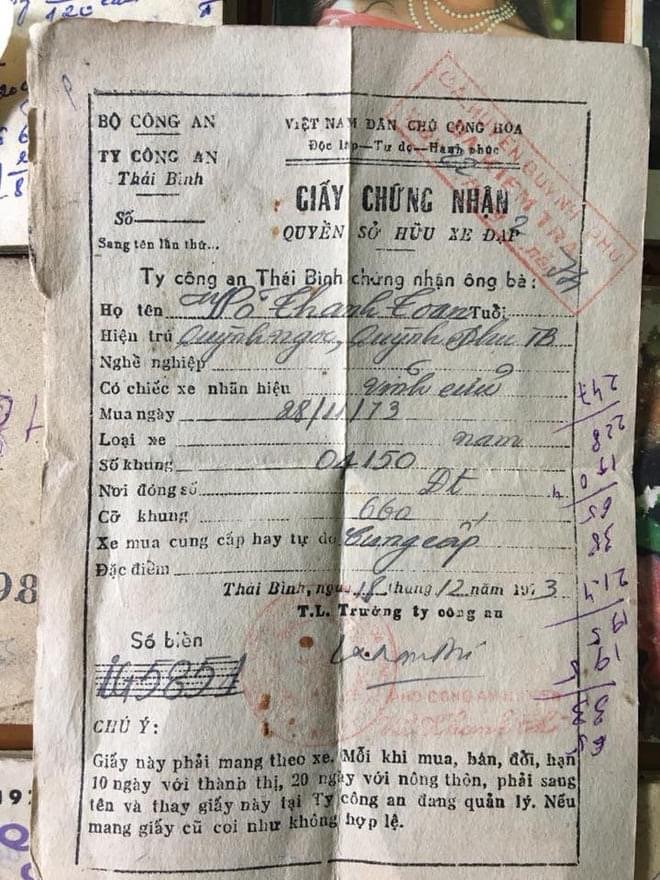 BỘ CÔNG AN
TY CÔNG AN
Thái Bình
Số
Sang tên lần thứ...
VIỆT NAM DÂN CHỦ CỘNG HÒA
Độc lập—Tự do—Hạnh phúc
GIẤY CHỨNG NHẬN
QUYỀN SỞ HỮU XE ĐẠP
C.A HUYỆN QUỲNH PHỤ
KIỂM TRA
Ty công an Thái Bình chứng nhận ông bà:
Họ tên Thanh Toan Tuổi
Hiện trú Quỳnh ngọc, Quỳnh Phụ TB
Nghề nghiệp
Có chiếc xe nhãn hiệu Vĩnh cửu
Mua ngày 28/11/73
Loại xe nam
Số khung 04150
Nơi đóng số Đt
Cỡ khung 660
Xe mua cung cấp hay tự do Cung cấp
Đặc điểm
Thái Bình, ngày 18 tháng 12 năm 1973
T.L. Trưởng ty công an
Số biển
145851
PHÓ CÔNG AN HUYỆN
CHÚ Ý:
Giấy này phải mang theo xe. Mỗi khi mua, bán, đổi, hạn
10 ngày với thành thị, 20 ngày với nông thôn, phải sang
tên và thay giấy này tại Ty công an đang quản lý. Nếu
mang giấy cũ coi như không hợp lệ.
247
228
65
38
214
19